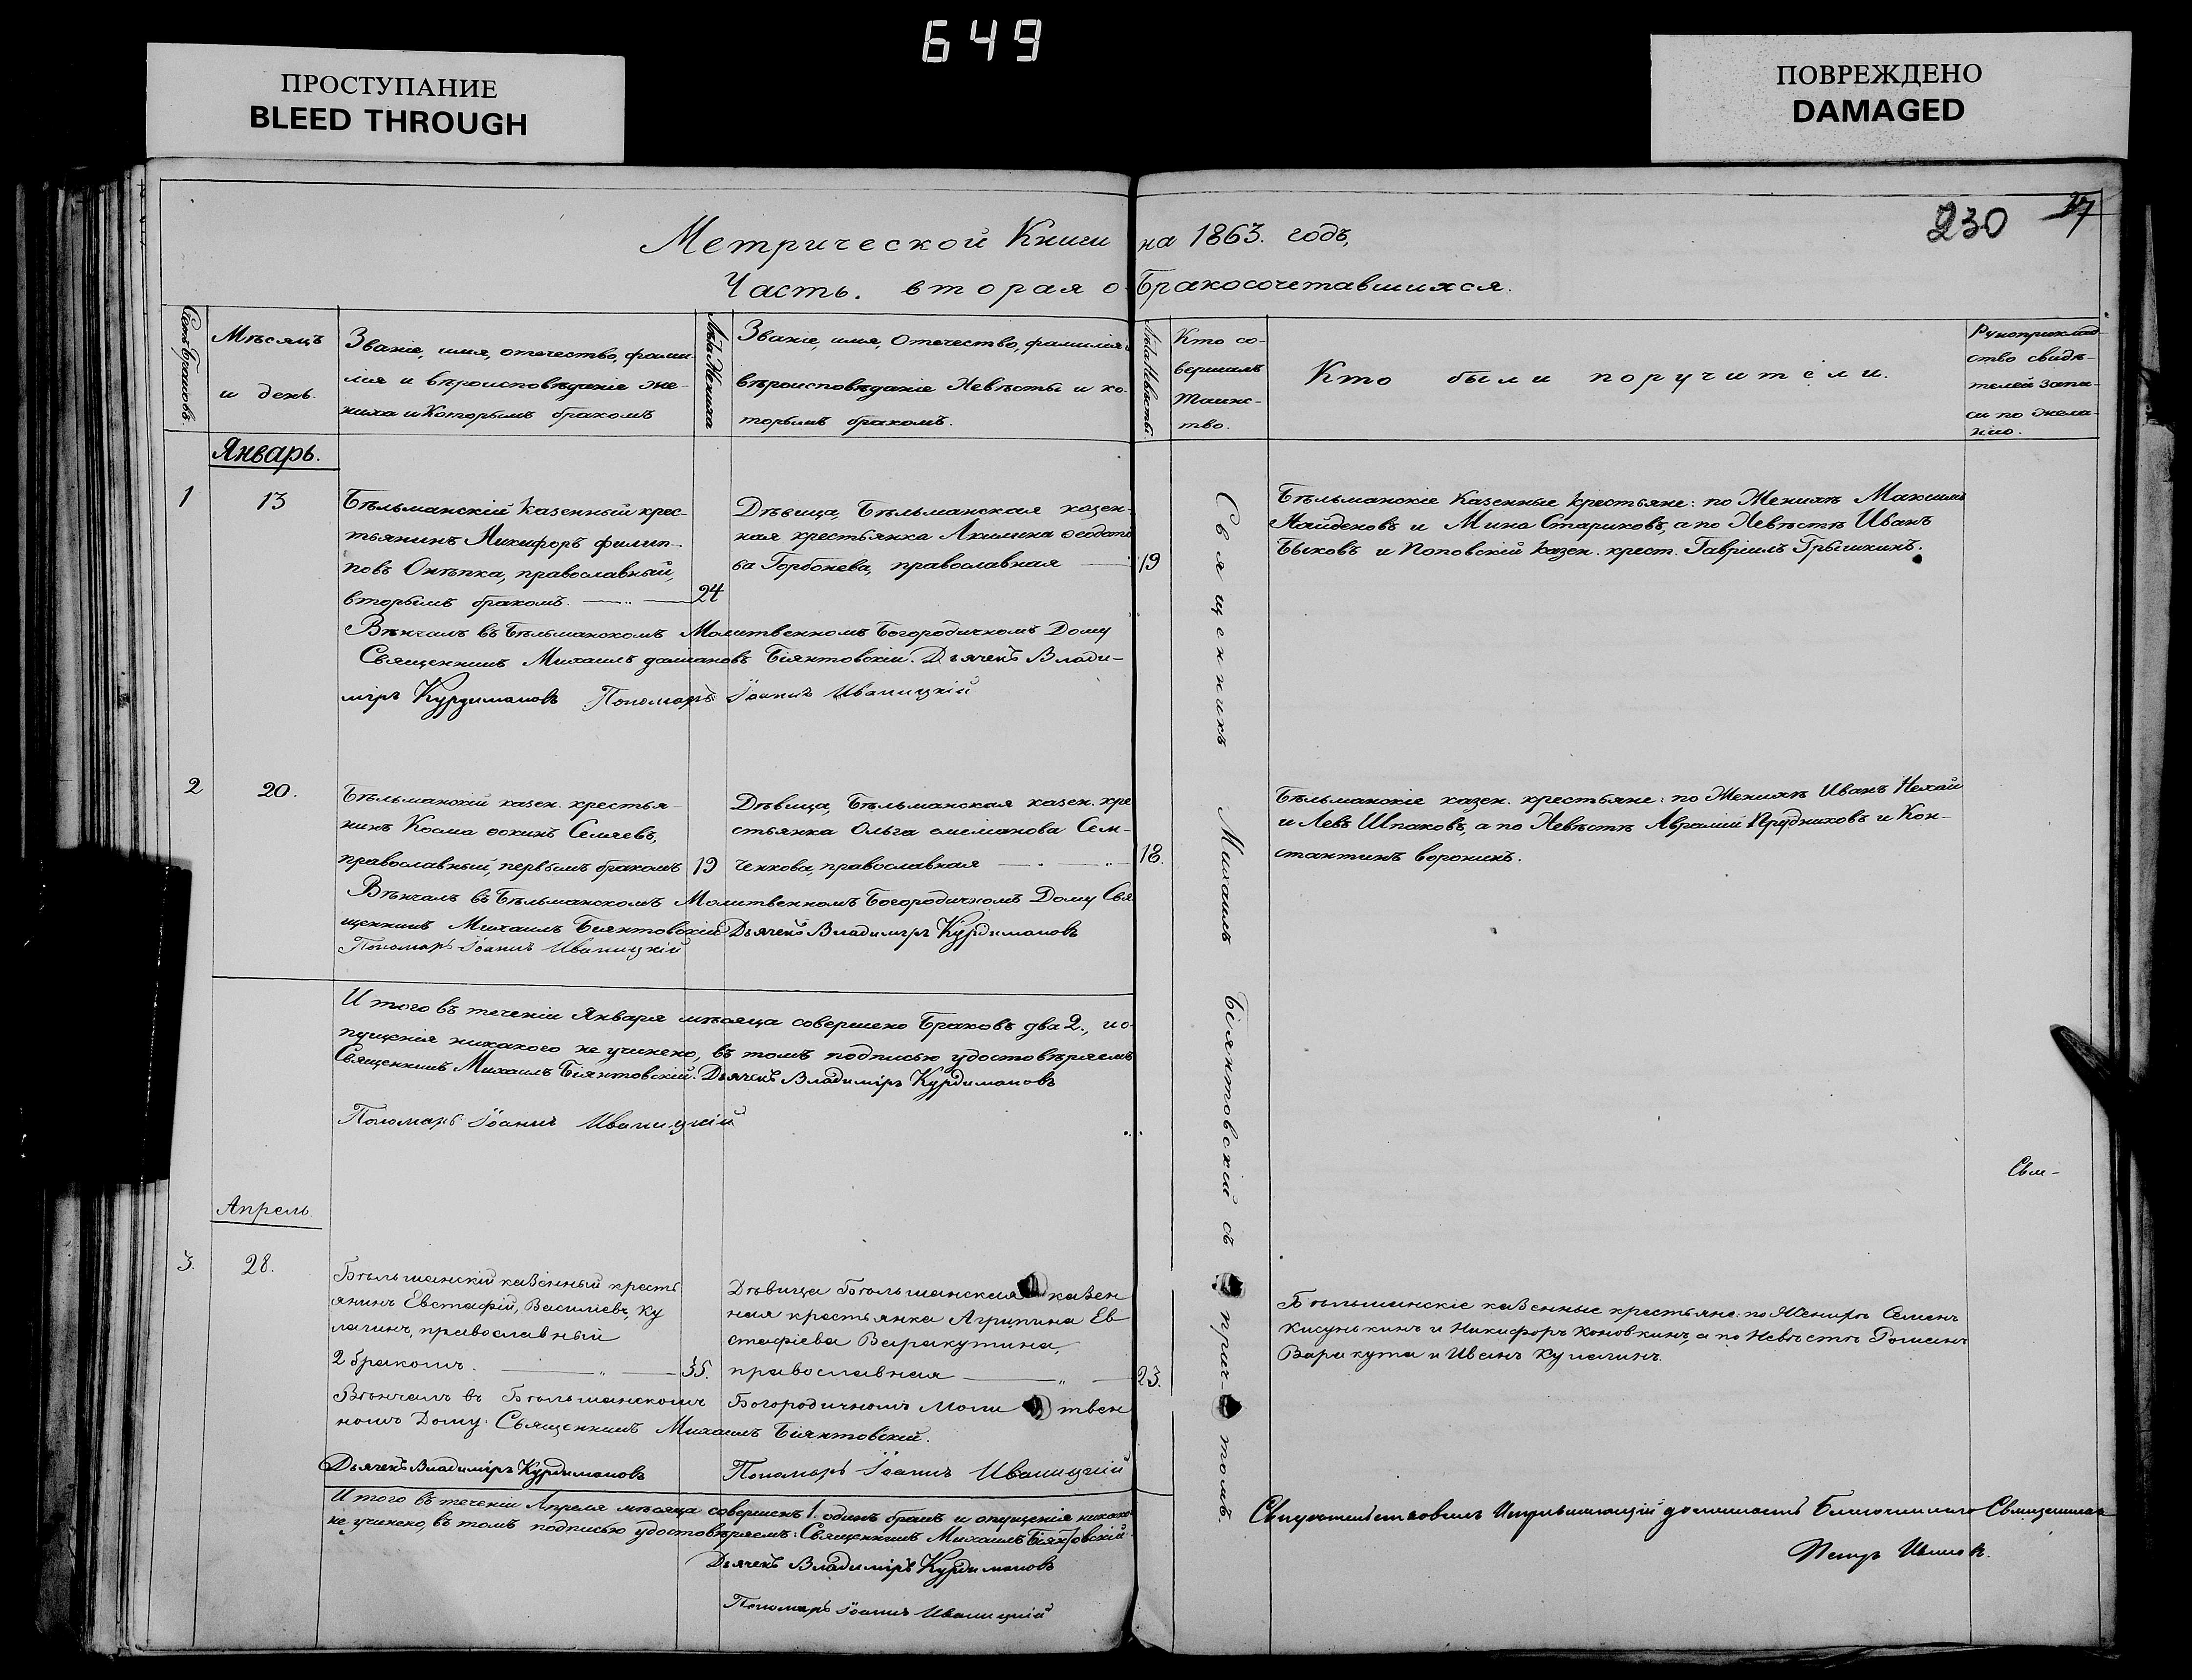 649
ПРОСТУПАНИЕ
BLEED THROUGH
ПОВРЕЖДЕНО
DAMAGED
230 27
Метрической Книги на 1863. годъ,
Часть. вторая о Бракосочетавшихся.
Счетъ Браковъ.
Мѣсяцъ
и день.
Званіе, имя, отечество, фами-
лія и вѣроисповѣданіе же-
ниха и Которымъ бракомъ
Лѣта Жениха
Званіе, имя, Отечество, фамилія и
вѣроисповѣданіе Невѣсты и ко-
торымъ бракомъ.
Лѣта Невѣсты.
Кто со-
вершалъ
Таинс-
тво.
Кто были поручители.
Рукоприклад-
ство свидѣ-
телей запи-
си по жела-
нію.
Январь.
1
13
Бѣльманскій казенный крес-
тьянинъ Никифоръ филип-
повъ Онѣпка, православный,
вторымъ бракомъ.
24
Дѣвица, Бѣльманская казен-
ная крестьянка Акилина
ва Горбонева, православная
19
Бѣльманскіе Казенные крестьяне: по Женихѣ Максимъ
Найденовъ и Мина Стариковъ, а по Невѣстѣ Иванъ
Быковъ и Поповскій казен. крест. Гавріилъ Грышкинъ.
Вѣнчалъ въ Бѣльманскомъ Молитвенномъ Богородичномъ Дому
Священникъ Михаилъ даміановъ Біянтовскій. Дьячекъ Влади-
міръ Курдимановъ Пономарь Іоаннъ Иваницкій
2
20.
Бѣльманскій казен. крестья-
нинъ Косма Семяевъ,
православный, первымъ бракомъ
19
Дѣвица, Бѣльманская казен. кре
стьянка Ольга Сем-
ченкова, православная
18.
Бѣльманскіе казен. крестьяне: по Женихѣ Иванъ Нехай
и Левъ Шпаковъ, а по Невѣстѣ Аврамій Прудниковъ и Кон-
стантинъ воронинъ.
Вѣнчалъ въ Бѣльманскомъ Молитвенномъ Богородичномъ Дому Свя
щенникъ Михаилъ Біянтовскій Дьячекъ Владиміръ Курдимановъ
Пономарь Іоаннъ Иваницкій
Итого въ теченіи Января мѣсяца совершено Браковъ два 2., и о-
пущенія никакого не учинено, въ томъ подписью удостовѣряемъ
Священникъ Михаилъ Біянтовскій. Дьячекъ Владиміръ Курдимановъ
Пономарь Іоаннъ Иваницкій
Священникъ Михаилъ Біянтовскій съ прич-томъ.
Апрель
3.
28.
Бѣльманскій казенный кресть
янинъ Евстафій, Василіевъ, Ку
лагинъ, православный
2 бракомъ.
35.
Дѣвица Бѣльманская казен
ная крестьянка Агрипина Ев
стафіева Варакутина,
православная
23.
Бѣльманскіе казенные крестьяне: по Женихѣ Семенъ
Кисунькинъ и Никифоръ Коновкинъ, а по Невѣстѣ Романъ
Варакута и Иванъ Кулагинъ.
Вѣнчалъ въ Бѣльманскомъ Богородичномъ Моли твен
номъ Дому: Священникъ Михаилъ Біянтовскій.
Дьячекъ Владиміръ Курдимановъ Пономарь Іоаннъ Иваницкій
Итого въ теченіи Апреля мѣсяца совершенъ 1. одинъ бракъ и опущенія никакого
не учинено, въ томъ подписью удостовѣряемъ: Священникъ Михаилъ Біянтовскій
Дьячекъ Владиміръ Курдимановъ
Пономарь Іоаннъ Иваницкій
Свидѣтельствовалъ Исправляющій должность Благочиннаго Священникъ
Петръ